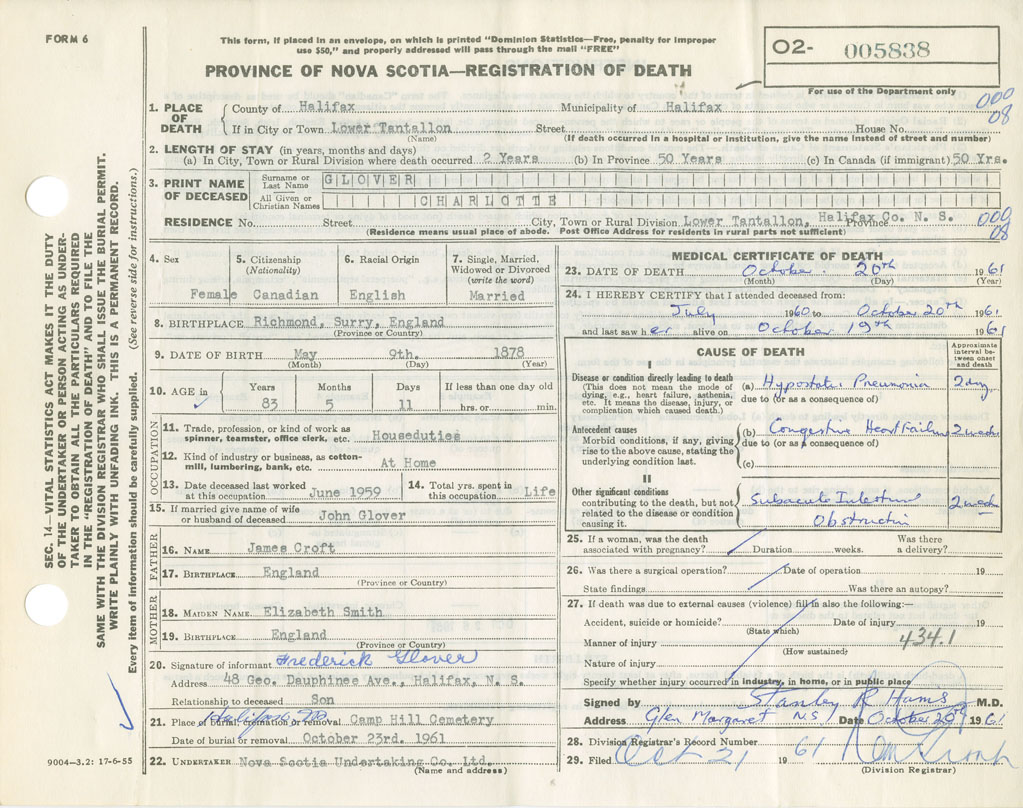 FORM 6
This form, if placed in an envelope, on which is printed "Dominion Statistics—Free, penalty for improper
use $50," and properly addressed will pass through the mail "FREE"
PROVINCE OF NOVA SCOTIA—REGISTRATION OF DEATH
02- 005838
For use of the Department only
000
08
1. PLACE OF DEATH
County of Halifax Municipality of Halifax
If in City or Town Lower Tantallon Street House No.
(Name) (If death occurred in a hospital or institution, give the name instead of street and number)
2. LENGTH OF STAY (in years, months and days)
(a) In City, Town or Rural Division where death occurred 2 Years (b) In Province 50 Years (c) In Canada (if immigrant) 50 Yrs.
3. PRINT NAME OF DECEASED
Surname or Last Name GLOVER
All Given or Christian Names CHARLOTTE
RESIDENCE No. Street City, Town or Rural Division Lower Tantallon, Halifax Co. N. S. Province
000
08
(Residence means usual place of abode. Post Office Address for residents in rural parts not sufficient)
4. Sex Female
5. Citizenship (Nationality) Canadian
6. Racial Origin English
7. Single, Married, Widowed or Divorced (write the word) Married
8. BIRTHPLACE Richmond, Surry, England
(Province or Country)
9. DATE OF BIRTH May 9th. 1878
(Month) (Day) (Year)
10. AGE in Years Months Days If less than one day old
83 5 11 hrs. or min.
OCCUPATION
11. Trade, profession, or kind of work as
spinner, teamster, office clerk, etc. Houseduties
12. Kind of industry or business, as cotton-
mill, lumbering, bank, etc. At Home
13. Date deceased last worked at this occupation June 1959
14. Total yrs. spent in this occupation Life
15. If married give name of wife
or husband of deceased John Glover
FATHER
16. NAME James Croft
17. BIRTHPLACE England
(Province or Country)
MOTHER
18. MAIDEN NAME Elizabeth Smith
19. BIRTHPLACE England
(Province or Country)
20. Signature of informant Frederick Glover
Address 48 Geo. Dauphinee Ave., Halifax, N. S.
Relationship to deceased Son
21. Place of burial, cremation or removal Camp Hill Cemetery
Halifax NS
Date of burial or removal October 23rd. 1961
22. UNDERTAKER Nova Scotia Undertaking Co. Ltd.
(Name and address)
MEDICAL CERTIFICATE OF DEATH
23. DATE OF DEATH October 20th 1961
(Month) (Day) (Year)
24. I HEREBY CERTIFY that I attended deceased from:
July 1960 to October 20th 1961
and last saw her alive on October 19th 1961
CAUSE OF DEATH
Approximate interval between onset and death
I
Disease or condition directly leading to death
(This does not mean the mode of
dying, e.g., heart failure, asthenia,
etc. It means the disease, injury, or
complication which caused death.)
(a) Hypostatic Pneumonia 2 day
due to (or as a consequence of)
Antecedent causes
Morbid conditions, if any, giving
rise to the above cause, stating the
underlying condition last.
(b) Congestive Heart Failure 2 weeks
due to (or as a consequence of)
(c)
II
Other significant conditions
contributing to the death, but not
related to the disease or condition
causing it.
Subacute Intestinal 2 weeks
Obstruction
25. If a woman, was the death Was there
associated with pregnancy? Duration weeks. a delivery?
26. Was there a surgical operation? Date of operation 19
State findings Was there an autopsy?
27. If death was due to external causes (violence) fill in also the following:—
Accident, suicide or homicide? Date of injury 19
(State which)
434.1
Manner of injury
(How sustained)
Nature of injury
Specify whether injury occurred in industry, in home, or in public place
Signed by Stanley R Hams M.D.
Address Glen Margaret NS Date October 20th 1961
28. Division Registrar's Record Number
29. Filed Oct 21 1961
(Division Registrar)
SEC. 14—VITAL STATISTICS ACT MAKES IT THE DUTY
OF THE UNDERTAKER OR PERSON ACTING AS UNDER-
TAKER TO OBTAIN ALL THE PARTICULARS REQUIRED
IN THE "REGISTRATION OF DEATH" AND TO FILE THE
SAME WITH THE DIVISION REGISTRAR WHO SHALL ISSUE THE BURIAL PERMIT.
WRITE PLAINLY WITH UNFADING INK. THIS IS A PERMANENT RECORD.
Every item of information should be carefully supplied. (See reverse side for instructions.)
9004—3.2: 17-6-55